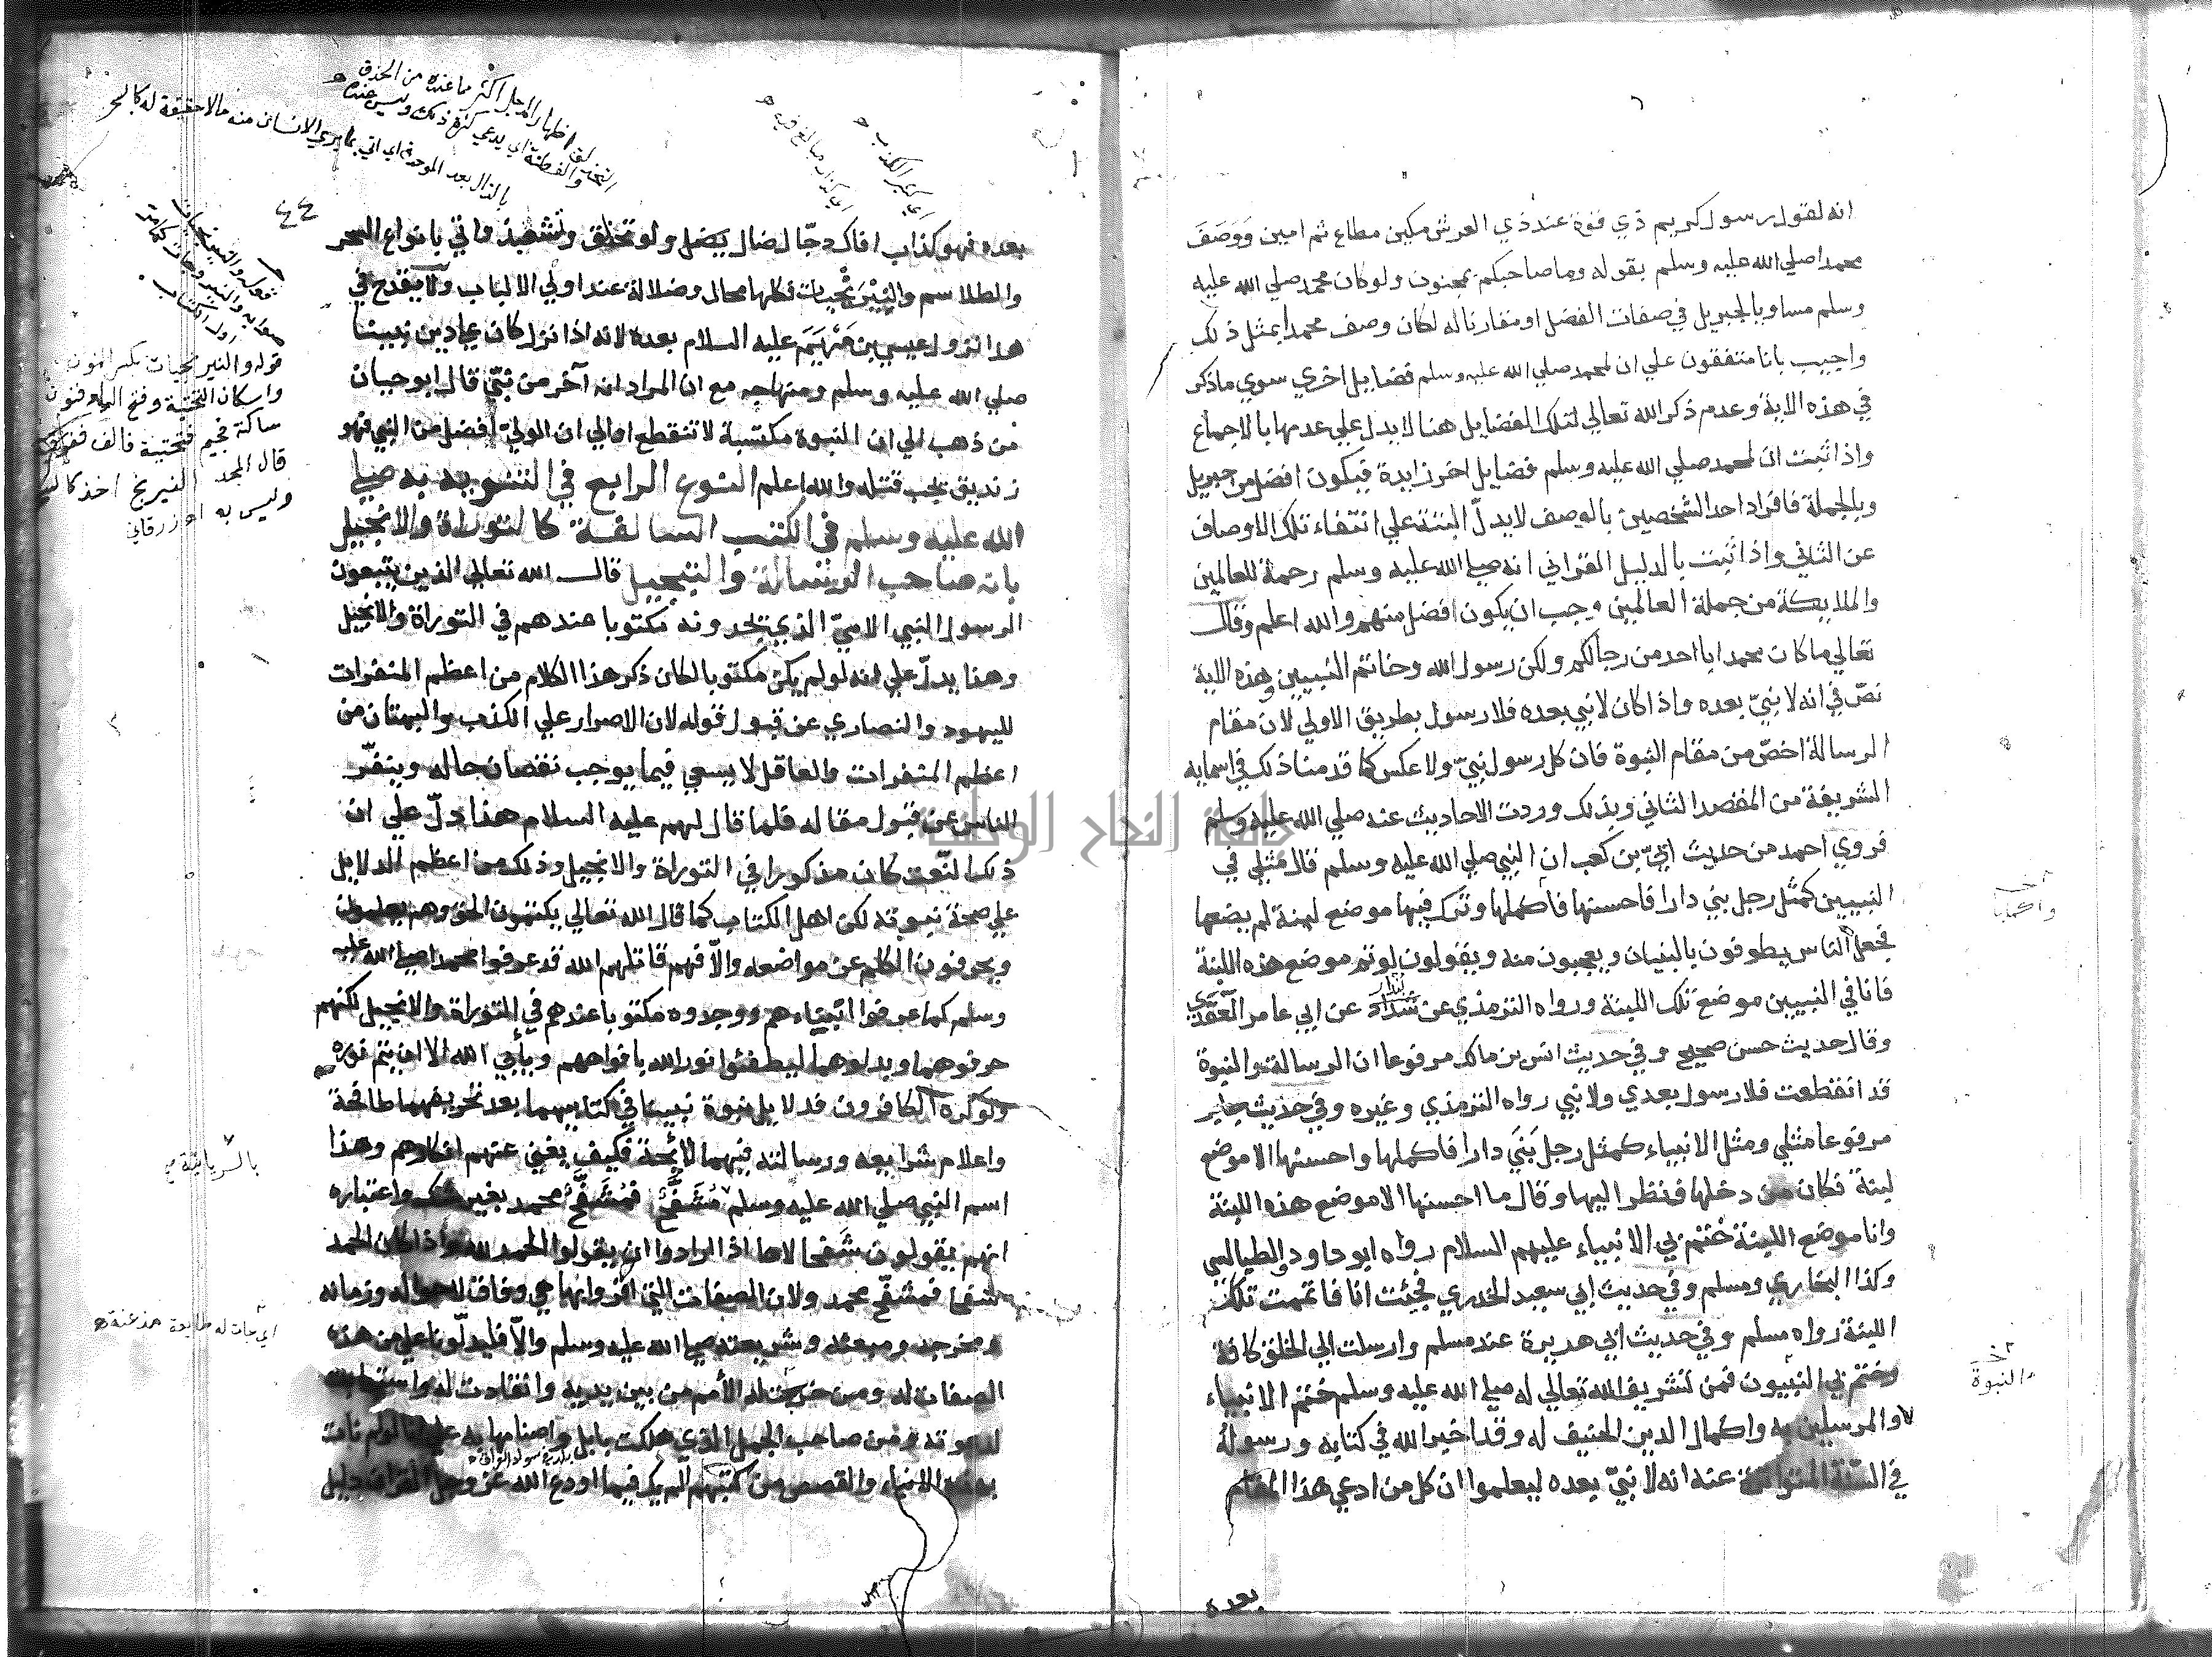 انه لقول رسول كريم ذي قوة عند ذي العرش مكين مطاع ثم امين وَوَصَفَ
محمدا صلي الله عليه وسلم بقوله وما صاحبكم بمجنون ولو كان محمد صلي الله عليه
وسلم مساويا لجبريل في صفات الفضل او مقارنا له لكان وصف محمدا بمثل ذلك
واجيب بانا متفقون علي ان لمحمد صلي الله عليه وسلم فضايل اخري سوي ما ذكر
في هذه الاية وعدم ذكر الله تعالي لتلك الفضايل هنا لا يدل علي عدمها بالاجماع
واذا ثبت ان لمحمد صلي الله عليه وسلم فضايل اخر زايدة فيكون افضل من جبريل
وبالجملة فافراد احد الشخصين بالوصف لا يدلّ البتة علي انتفاء تلك الاوصاف
عن الثاني واذا ثبت بالدليل القراني انه صلي الله عليه وسلم رحمة للعالمين
والملايكة من جملة العالمين وجب ان يكون افضل منهم والله اعلم وقال
تعالي ما كان محمد ابا احد من رجالكم ولكن رسول الله وخاتم النبيين وهذه الاية
نصّ في انه لا نبيّ بعده واذا كان لا نبي بعده فلا رسول بطريق الاولي لان مقام
الرسالة اخصّ من مقام النبوة فان كل رسول نبيّ ولا عكس كما قدمنا ذلك في اسمايه
الشريفة من المقصد الثاني وبذلك وردت الاحاديث عنه صلي الله عليه وسلم
فروي احمد من حديث ابيّ بن كعب ان النبي صلي الله عليه وسلم قال مثلي في
النبيين كمثل رجل بني دارا فاحسنها فاكملها وترك فيها موضع لبنة لم يضعها
فجعل الناس يطوفون بالبنيان ويعجبون منه ويقولون لو تم موضع هذه اللبنة
فانا في النبيين موضع تلك اللبنة ورواه الترمذي عن بندار عن ابي عامر العَقَدي
وقال حديث حسن صحيح وفي حديث انس بن مالك مرفوعا ان الرسالة والنبوة
قد انقطعت فلا رسول بعدي ولا نبي رواه الترمذي وغيره وفي حديث جابر
مرفوعا مثلي ومثل الانبياء كمثل رجل بَنَي دارا فاكملها واحسنها الا موضع
لبنة فكان من دخلها فنظر اليها وقال ما احسنها الا موضع هذه اللبنة
وانا موضع اللبنة خُتم بي الانبياء عليهم السلام رواه ابو داود الطيالسي
وكذا البخاري ومسلم وفي حديث ابي سعيد الخدري فجئت انا فاتممت تلك
اللبنة رواه مسلم وفي حديث ابي هريرة عند مسلم وارسلت الي الخلق كافة
وختم بي النبيون فمن تشريف الله تعالي له صلي الله عليه وسلم ختم الانبياء
والمرسلين به واكمال الدين الحنيف له وقد اخبر الله في كتابه ورسولُه
في السّنة المتواترة عنه انه لا نبيّ بعده ليعلموا ان كل من ادعي هذا المقام
بعده
والنبوة
٤٤
بعده فهو كذاب افاك دجّال ضال يضل ولو تحذلق وتشعبذ واتي بانواع السحر
والطلاسم والنِيْرَنْجيات فكلها محال وضلالة عند اولي الالباب ولا يقدح في
هذا نزول عيسي بن مَرْيَمَ عليه السلام بعده لانه اذا نزل كان علي دين نبينا
صلي الله عليه وسلم ومنهاجه مع ان المراد انه آخر من نبّئ قال ابو حيان
من ذهب الي ان النبوة مكتسبة لا تنقطع او الي ان الوليّ افضل من النبي فهو
زنديق يجب قتله والله اعلم النوع الرابع في التنويه به صلي
الله عليه وسلم في الكتب السالفة كالتوراة والانجيل
بانه صاحب الرسالة والتبجيل قال الله تعالي الذين يتبعون
الرسول النبي الاميّ الذي يجدونه مكتوبا عندهم في التوراة والانجيل
وهذا يدلّ علي انه لو لم يكن مكتوبا لكان ذكر هذا الكلام من اعظم المنفرات
لليهود والنصاري عن قبول قوله لان الاصرار علي الكذب والبهتان من
اعظم المنفرات والعاقل لا يسعي فيما يوجب نقصان حاله وينفّر
الناس عن قبول مقاله فلما قال لهم عليه السلام هذا دلّ علي ان
ذلك النّعت كان مذكورا في التوراة والانجيل وذلك من اعظم الدلايل
علي صحة نبوته لكن اهل الكتاب كما قال الله تعالي يكتمون الحق وهم يعلمون
ويحرفون الكلم عن مواضعه والاّ فهم قاتلهم الله قد عرفوا محمدا صلي الله عليه
وسلم كما عرفوا ابناءهم ووجدوه مكتوبا عندهم في التوراة والانجيل لكنهم
حرفوهما وبدلوهما ليطفئوا نور الله بافواههم ويأبي الله الا ان يتم نوره
ولو كره الكافرون فدلايل نبوة نبينا في كتابيهما بعد تحريفهما طافحة
واعلام شرايعه ورسالته فيهما لائحة فكيف يغني عنهم انكارهم وهذا
اسم النبي صلي الله عليه وسلم مُشَفَّح فمُشَفَّح محمد بغير شك واعتباره
انهم يقولون شفحا لاها اذا ارادوا ان يقولوا الحمد لله واذا كان الحمد
شفحا فمشفّح محمد ولان الصفات التي اقروا بها هي وفاق لاحواله وزمانه
ومخرجه ومبعثه وشريعته صلي الله عليه وسلم والاّ فليدلّونا علي من هذه
الصفات له ومن خرجت له الأمم من بين يديه وانقادت له واستجابت
لدعوته ومن صاحب الجمل الذي هلكت بابل واصنامها به علي انا لو لم نأت
بهذه الانباء والقصص من كتبهم ألم يك فيما اودع الله عز وجل القران دليل
اي كثير الكذب
قوله والنيرنجيات بكسر النون
واسكان التحتية وفتح الراء فنون
ساكنة فجيم فتحتية فالف ففوقية
قال المجد النيرنج اخذ كالسحر
وليس به اه زرقاني
بالسريانية
جامعة النجاح الوطنية